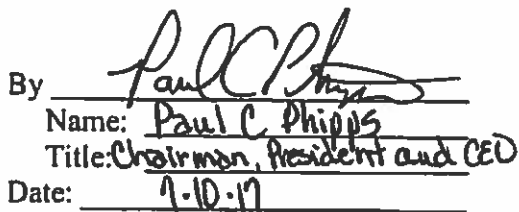 By Paul C Phipps
Name: Paul C Phipps
Title: Chairman, President and CEO
Date: 7-10-17